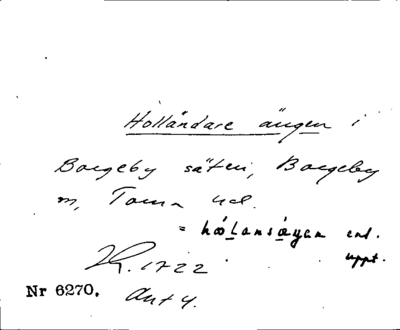 Holländare ängen i
Borgeby säteri, Borgeby
m, Torna hd.
= hålansägen enl.
uppt.
1722
Nr 6270. Ant 4.